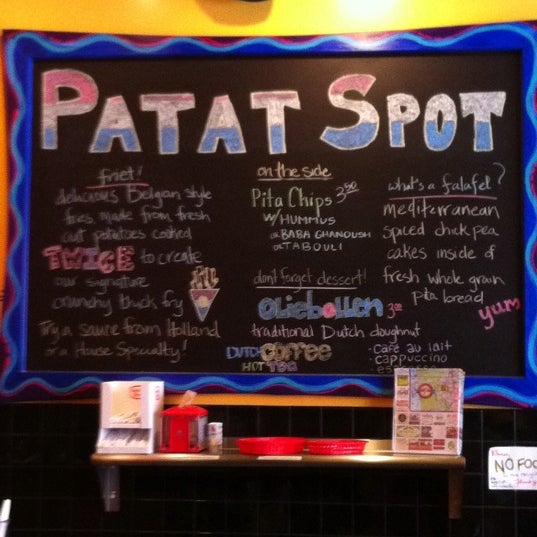 PATAT SPOT
friet!
delicious Belgian style
fries, made from fresh
cut potatoes cooked
TWICE to create
our signature
crunchy thick fry
Try a sauce from Holland
or a House Specialty!
on the side
Pita Chips 3.50
w/ HUMMUS
or BABA GHANOUSH
or TABOULI
don't forget dessert!
Oliebollen 3.00
traditional Dutch doughnut
DUTCH COFFEE
HOT TEA
- Café au lait
- cappuccino
what's a falafel?
mediterranean
spiced chick pea
cakes inside of
fresh whole grain
pita bread
yum
NO FOO